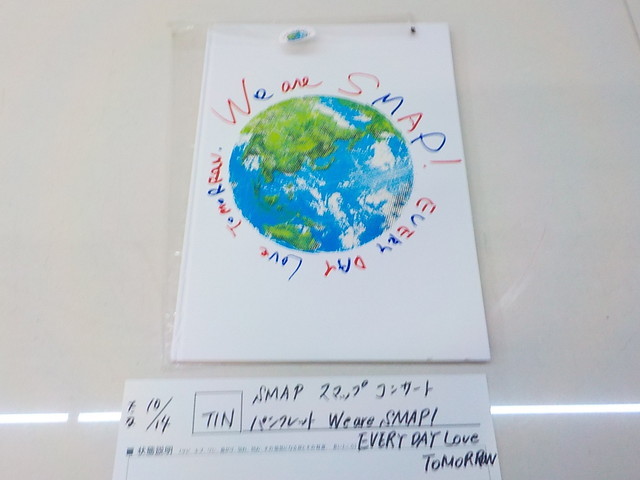 We are SMAP!
EVERY DAY LOVE TOMORROW.
SMAP スマップ コンサート
10/14
TIN
パンフレット We are SMAP!
EVERY DAY Love
TOMORROW
■ 状態説明